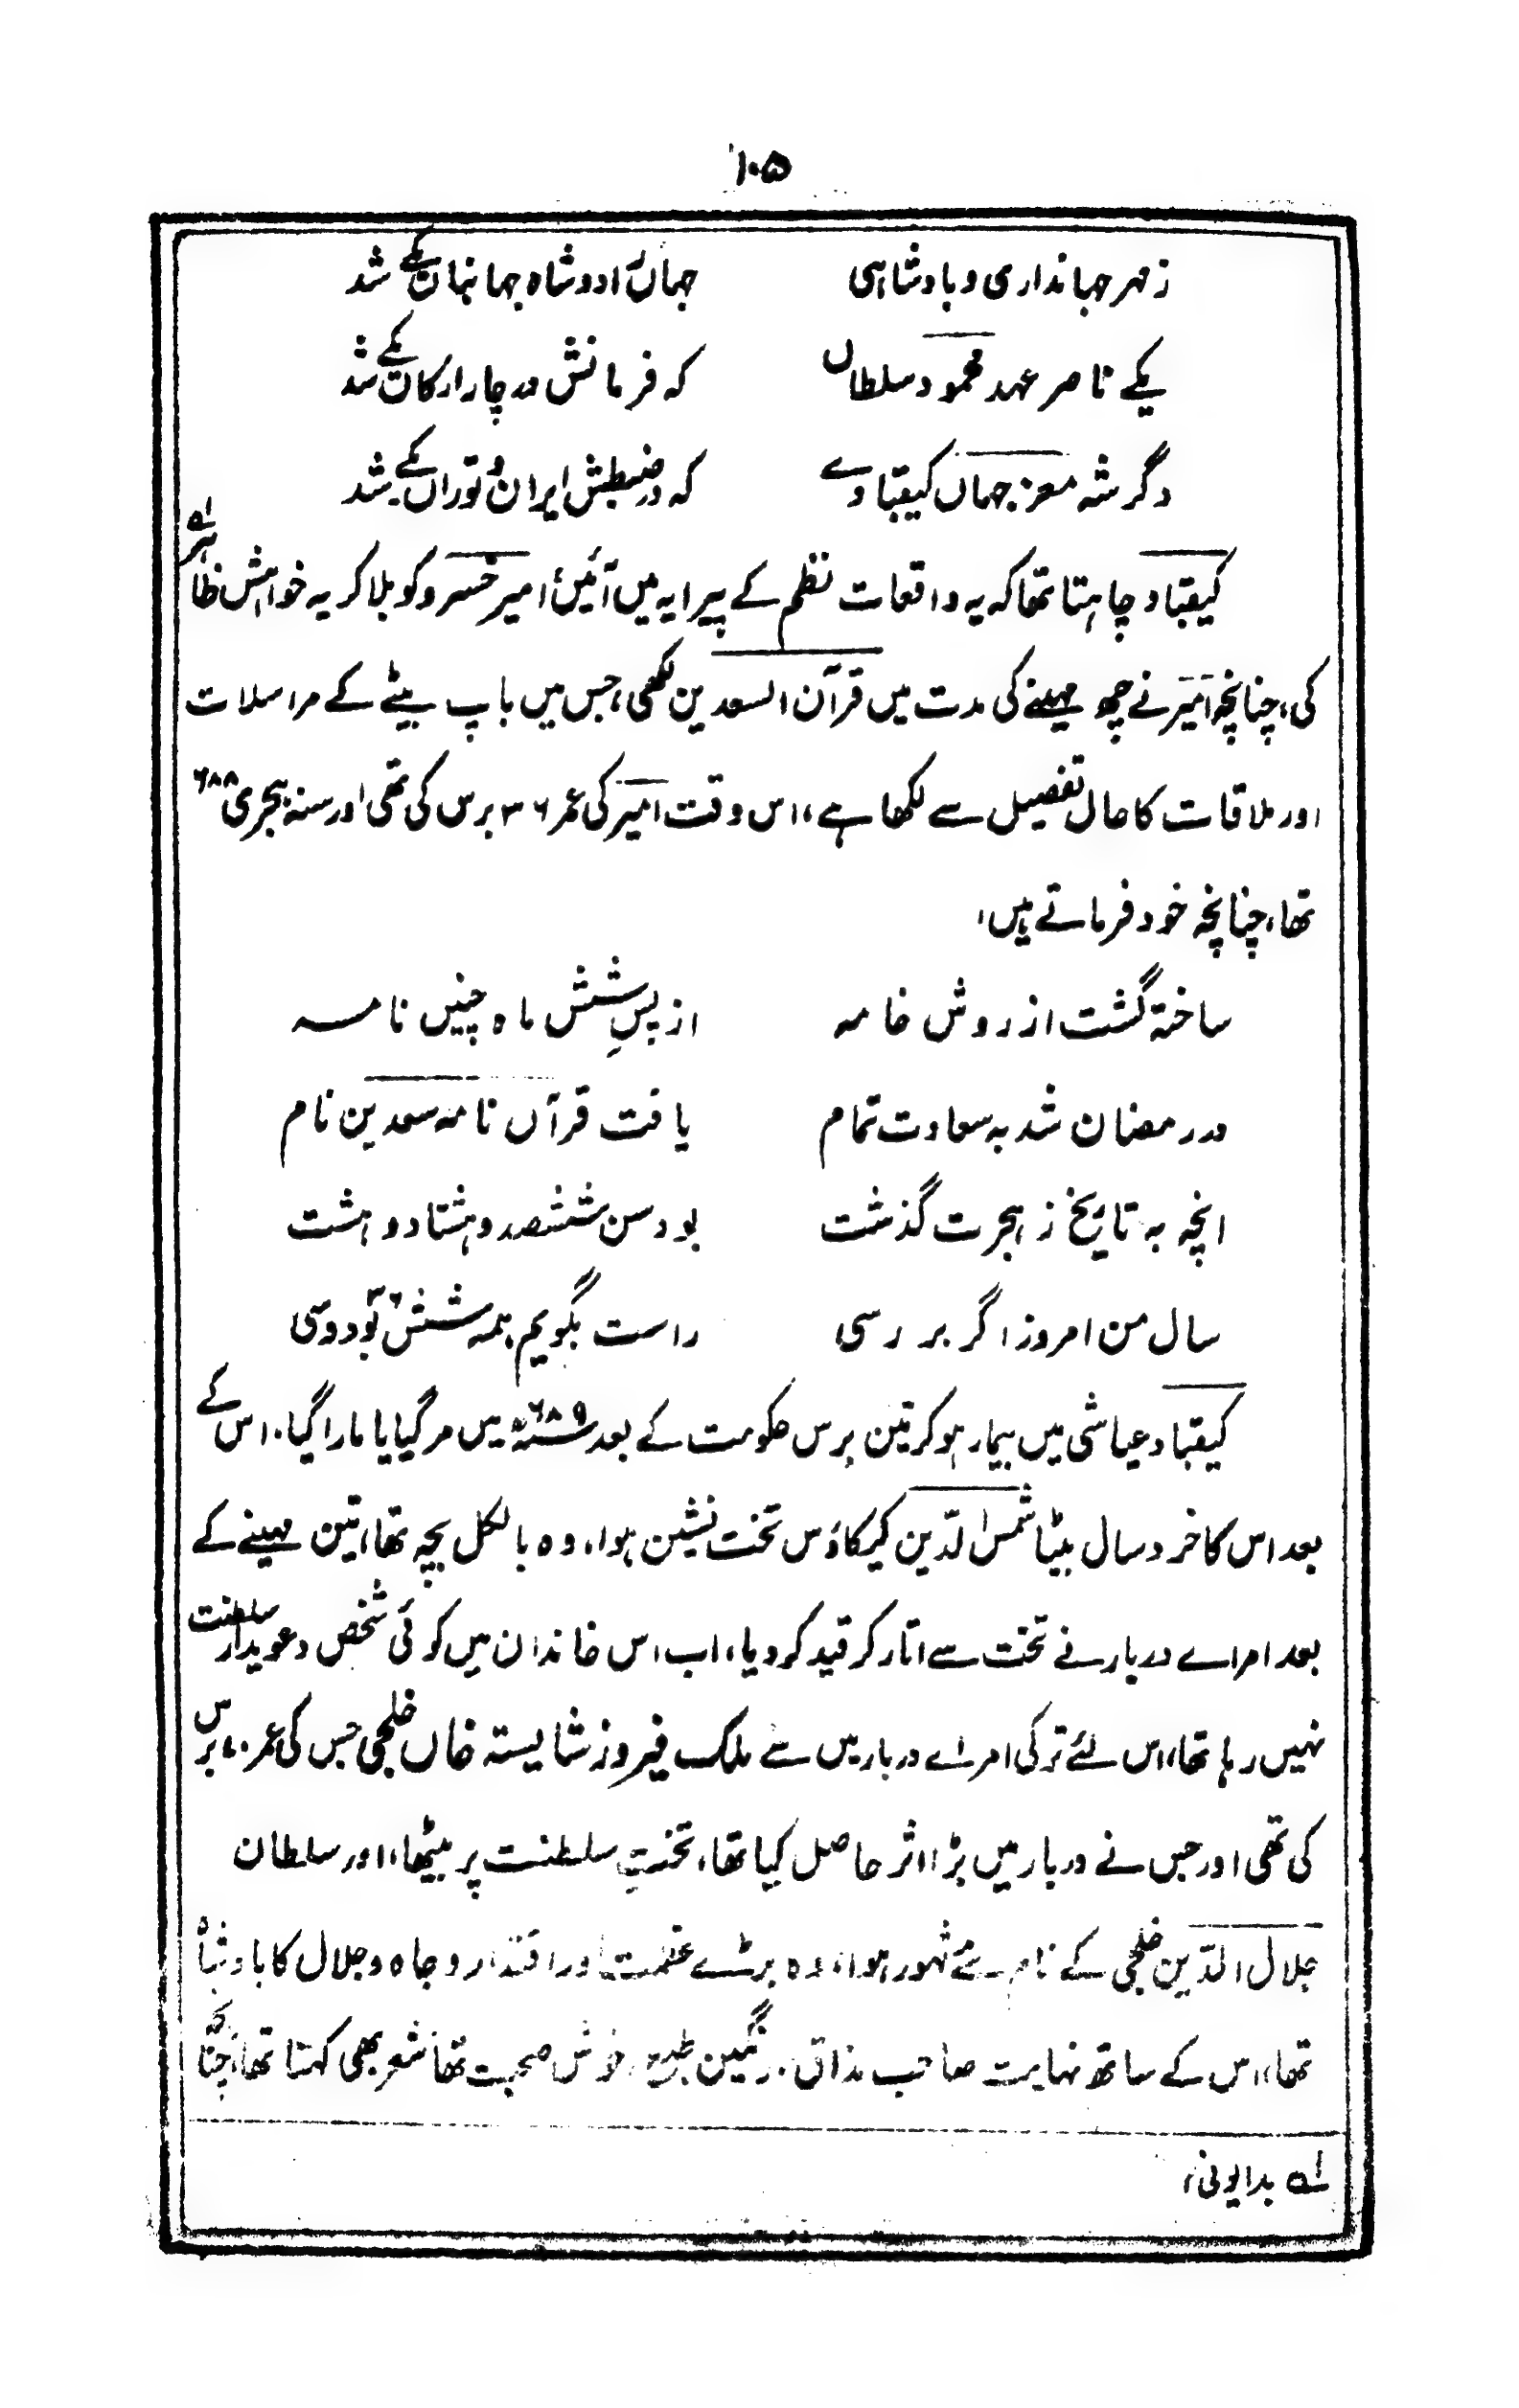 ۱۰۵
ز مہر جہانداری و بادشاہی جہاں را دو شاہ جہانباں یکے شد
یکے ناصر عہد محمود سلطاں کہ فرمانش در چار ارکان یکے شد
دگر شہ معز جہاں کیقبادے کہ در ضبطش ایران و توراں یکے شد
کیقباد چاہتا تھا کہ یہ واقعات نظم کے پیرایہ میں آئیں امیر خسرو کو بلا کر یہ خواہش ظاہر
کی، چنانچہ امیر نے چھ مہینے کی مدت میں قرآن السعدین لکھی، جس میں باپ بیٹے کے مراسلات
اور ملاقات کا حال تفصیل سے لکھا ہے، اس وقت امیر کی عمر ۳۶ برس کی تھی اور سنہ ہجری ۶۸۸
تھا، چنانچہ خود فرماتے ہیں،
ساختہ گشت از روش خامہ از پسِ شش ماہ چنیں نامہ
در رمضان شد بہ سعادت تمام یافت قرآں نامہ سعدین نام
انچہ بہ تاریخ ز ہجرت گذشت بود سن ششصد و ہشتاد و ہشت
سال من امروز اگر بر رسی راست بگویم ہمہ شش بود و سی ۳۶
کیقباد عیاشی میں بیمار ہو کر تین برس حکومت کے بعد ۶۸۹ھ میں مر گیا یا مارا گیا۔ اس کے
بعد اس کا خرد سال بیٹا شمس الدّین کیکاؤس تخت نشین ہوا، وہ بالکل بچہ تھا، تین مہینے کے
بعد امراے دربار نے تخت سے اتار کر قید کر دیا، اب اس خاندان میں کوئی شخص دعویدار سلطنت
نہیں رہا تھا، اس لئے ترکی امراے دربار میں سے ملک فیروز شایستہ خاں خلجی جس کی عمر ۷۰ برس
کی تھی اور جس نے دربار میں بڑا اثر حاصل کیا تھا، تختِ سلطنت پر بیٹھا، اور سلطان
جلال الدّین خلجی کے نام سے مشہور ہوا، وہ بڑے عظمت اور اقتدار و جاہ و جلال کا بادشاہ
تھا، اس کے ساتھ نہایت صاحب مذاق، رنگین طبع، خوش صحبت تھا، شعر بھی کہتا تھا، چنانچہ
لہ بدایونی،